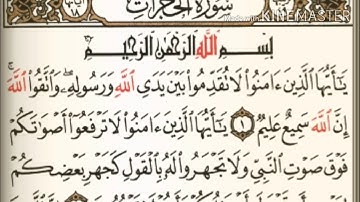 سُورَةُ الحُجُرَاتِ
KINEMASTER
بِسْمِ اللَّهِ الرَّحْمَٰنِ الرَّحِيمِ
يَٰٓأَيُّهَا الَّذِينَ ءَامَنُوا۟ لَا تُقَدِّمُوا۟ بَيْنَ يَدَيِ اللَّهِ وَرَسُولِهِۦ ۖ وَاتَّقُوا۟ اللَّهَ ۚ
إِنَّ اللَّهَ سَمِيعٌ عَلِيمٌ ١ يَٰٓأَيُّهَا الَّذِينَ ءَامَنُوا۟ لَا تَرْفَعُوٓا۟ أَصْوَٰتَكُمْ
فَوْقَ صَوْتِ النَّبِيِّ وَلَا تَجْهَرُوا۟ لَهُۥ بِالْقَوْلِ كَجَهْرِ بَعْضِكُمْ